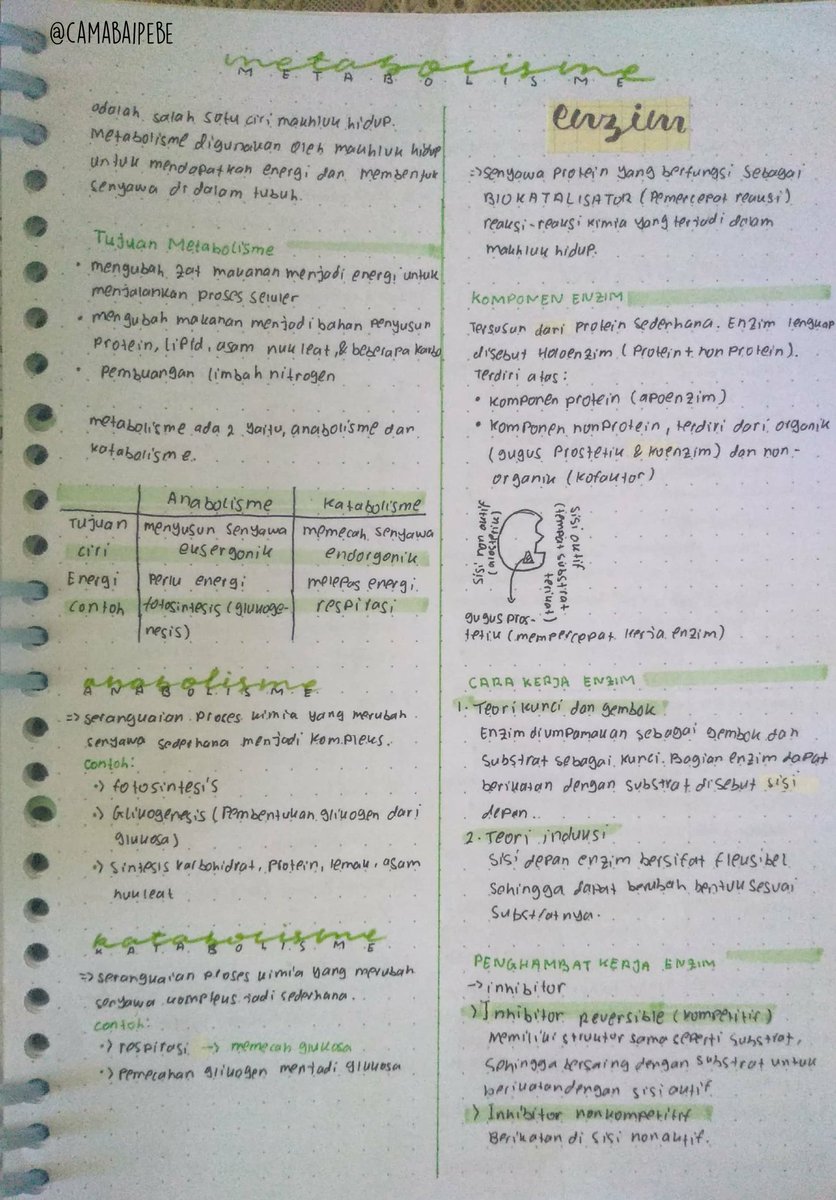 @CAMABAIPEBE
metabolisme
METABOLISME
adalah salah satu ciri makhluk hidup.
Metabolisme digunakan oleh makhluk hidup
untuk mendapatkan energi dan membentuk
senyawa di dalam tubuh.
Tujuan Metabolisme
• mengubah zat makanan menjadi energi untuk
menjalankan proses seluler
• mengubah makanan menjadi bahan penyusun
protein, lipid, asam nukleat, & beberapa karbo
• Pembuangan limbah nitrogen
metabolisme ada 2 yaitu, anabolisme dan
katabolisme.
Anabolisme Katabolisme
Tujuan menyusun senyawa memecah senyawa
ciri eksergonik endorgonik
Energi Perlu energi melepas energi
contoh fotosintesis (glukoge- respirasi
nesis)
anabolisme
ANABOLISME
=> serangkaian proses kimia yang merubah
senyawa sederhana menjadi kompleks.
contoh:
•) fotosintesis
•) Glikogenesis (Pembentukan glikogen dari
glukosa)
•) Sintesis karbohidrat, protein, lemak, asam
nukleat
katabolisme
KATABOLISME
=> serangkaian proses kimia yang merubah
senyawa kompleks jadi sederhana.
contoh:
•) respirasi -> memecah glukosa
•) pemecahan glikogen menjadi glukosa
enzim
=> senyawa protein yang berfungsi sebagai
BIOKATALISATOR (Pemercepat reaksi)
reaksi-reaksi kimia yang terjadi dalam
makhluk hidup.
KOMPONEN ENZIM
Tersusun dari protein sederhana. Enzim lengkap
disebut Haloenzim (Protein + non protein).
Terdiri atas:
• Komponen protein (apoenzim)
• Komponen nonprotein, terdiri dari organik
(gugus Prostetik & koenzim) dan non-
organik (kofaktor)
sisi non aktif
sisi aktif
(tempat substrat
terikat)
gugus pros-
tetik (mempercepat kerja enzim)
CARA KERJA ENZIM
1. Teori kunci dan gembok
Enzim diumpamakan sebagai gembok dan
substrat sebagai kunci. Bagian enzim dapat
berikatan dengan substrat disebut sisi
depan.
2. Teori induksi
Sisi depan enzim bersifat fleksibel
sehingga dapat berubah bentuk sesuai
substratnya.
PENGHAMBAT KERJA ENZIM
-> inhibitor
> Inhibitor reversible (kompetitif)
Memiliki struktur sama seperti substrat,
sehingga bersaing dengan substrat untuk
berikatan dengan sisi aktif
> Inhibitor nonkompetitif
Berikatan di sisi nonaktif.